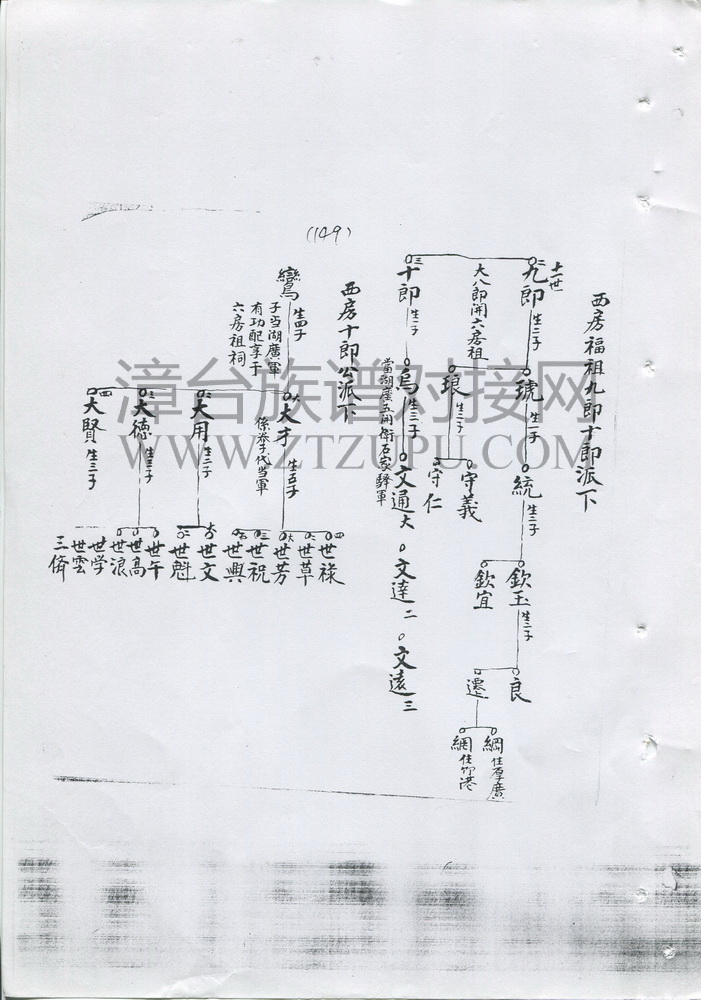 (149)
西房福祖九郎十郎派下
十一世
二
九郎 生二子
大八郎開六房祖
三
十郎 生一子
琥 生一子
琅 生二子
統 生二子
守義
守仁
欽玉 生二子
欽宜
良
遷
綱 住厚廣
網 住竹港
烏 生三子
當湖廣五開衛石家驛軍
文通 大
文達 二
文遠 三
西房十郎公派下
鸞 生四子
子当湖廣軍
有功配享于
六房祖祠
大
大才 生五子
係养子代当軍
二
大用 生二子
三
大德 生三子
四
大賢 生三子
四 世祿
二 世草
大 世芳
三 世祝
五 世興
大 世文
二 世魁
世午
世高
世浪
世学
世雲
三儕
漳台族谱对接网
WWW.ZTZUPU.COM